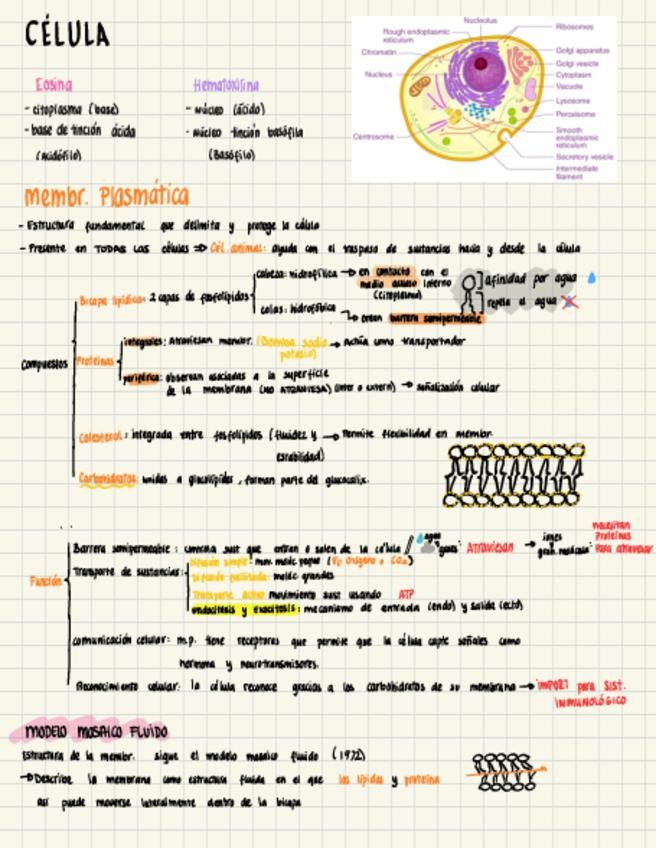 CÉLULA
Nucleolus
Rough endoplasmic reticulum
Ribosomes
Chromatin
Golgi apparatus
Golgi vesicle
Nucleus
Cytoplasm
Vacuole
Lysosome
Peroxisome
Centrosome
Smooth endoplasmic reticulum
Secretory vesicle
Intermediate filament
Eosina
- citoplasma (base)
- base de tinción ácida
(Acidófilo)
Hematoxilina
- núcleo (ácido)
- núcleo tinción basófila
(Basófilo)
membr. Plasmática
- Estructura fundamental que delimita y protege la célula
- Presente en TODAS LAS células => Cél. animal: ayuda con el traspaso de sustancias hacia y desde la célula
Compuestos
Bicapa lipídica: 2 capas de fosfolípidos
cabeza: hidrofílica → en contacto con el
medio acuoso interno
(citoplasma)
colas: hidrofóbica
→ crean barrera semipermeable
afinidad por agua
repele el agua
Proteínas
integrales: Atraviesan membr. (Bomba sodio potasio) → Actúa como transportador
periférica: observan asociadas a la superficie
de la membrana (NO ATRAVIESA) (inter o extern) → señalización celular
Colesterol: integrada entre fosfolípidos (fluidez y → Permite flexibilidad en membr.
estabilidad)
Carbohidratos: unidas a glucolípidos, forman parte del glucocalix.
Función
Barrera semipermeable: sust que entran o salen de la célula // agua gases: Atraviesan → iones
necesitan Proteínas Para atravesar
Transporte de sustancias:
Difusión simple: mov. molec peque (Ej: Oxígeno o CO2)
Difusión facilitada: moléc grandes
Transporte activo: movimiento sust usando ATP
endocitosis y exocitosis: mecanismo de entrada (endo) y salida (ecto)
comunicación celular: m.p. tiene receptores que permite que la célula capte señales como
hormona y neurotransmisores.
Reconocimiento celular: la célula reconoce gracias a los carbohidratos de su membrana → IMPORT para SIST.
INMUNOLÓGICO
MODELO MOSAICO FLUIDO
Estructura de la membr. sigue el modelo mosaico fluido (1972)
→ Describe la membrana como estructura fluida en el que los lípidos y proteína
así puede moverse lateralmente dentro de la bicapa